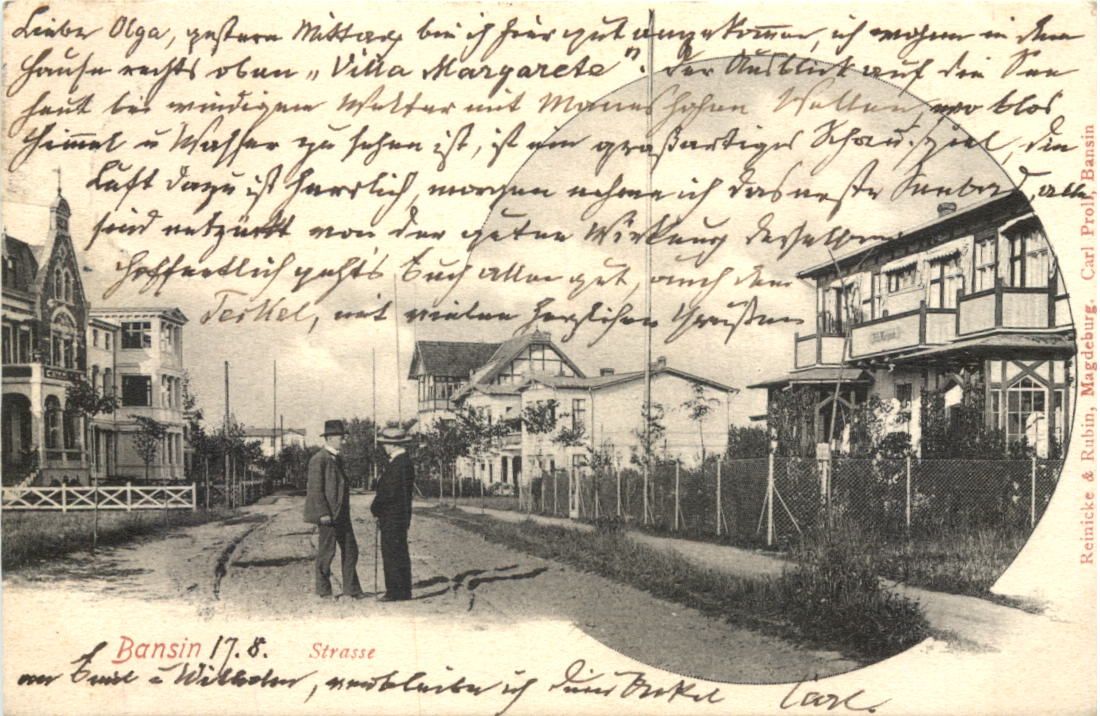 Liebe Olga, gestern Mittag bin ich hier gut angekommen, ich wohne in dem
Hause rechts oben „Villa Margarete". Der Ausblick auf die See
heut bei windigem Wetter mit Mannshohen Wellen, wo blos
Himmel u Wasser zu sehen ist, ist ein großartiges Schauspiel, die
Luft dazu ist herrlich, morgen nehme ich das erste Seebad, alle
sind entzückt von der guten Wirkung desselben
hoffentlich geht's Euch allen gut, auch dem
Teckel, mit vielen herzlichen Grüßen
Bansin 17.8. Strasse
an Emil u Wilhelm, verbleibe ich Dein Onkel Carl.
Reinicke & Rubin, Magdeburg. Carl Proll, Bansin